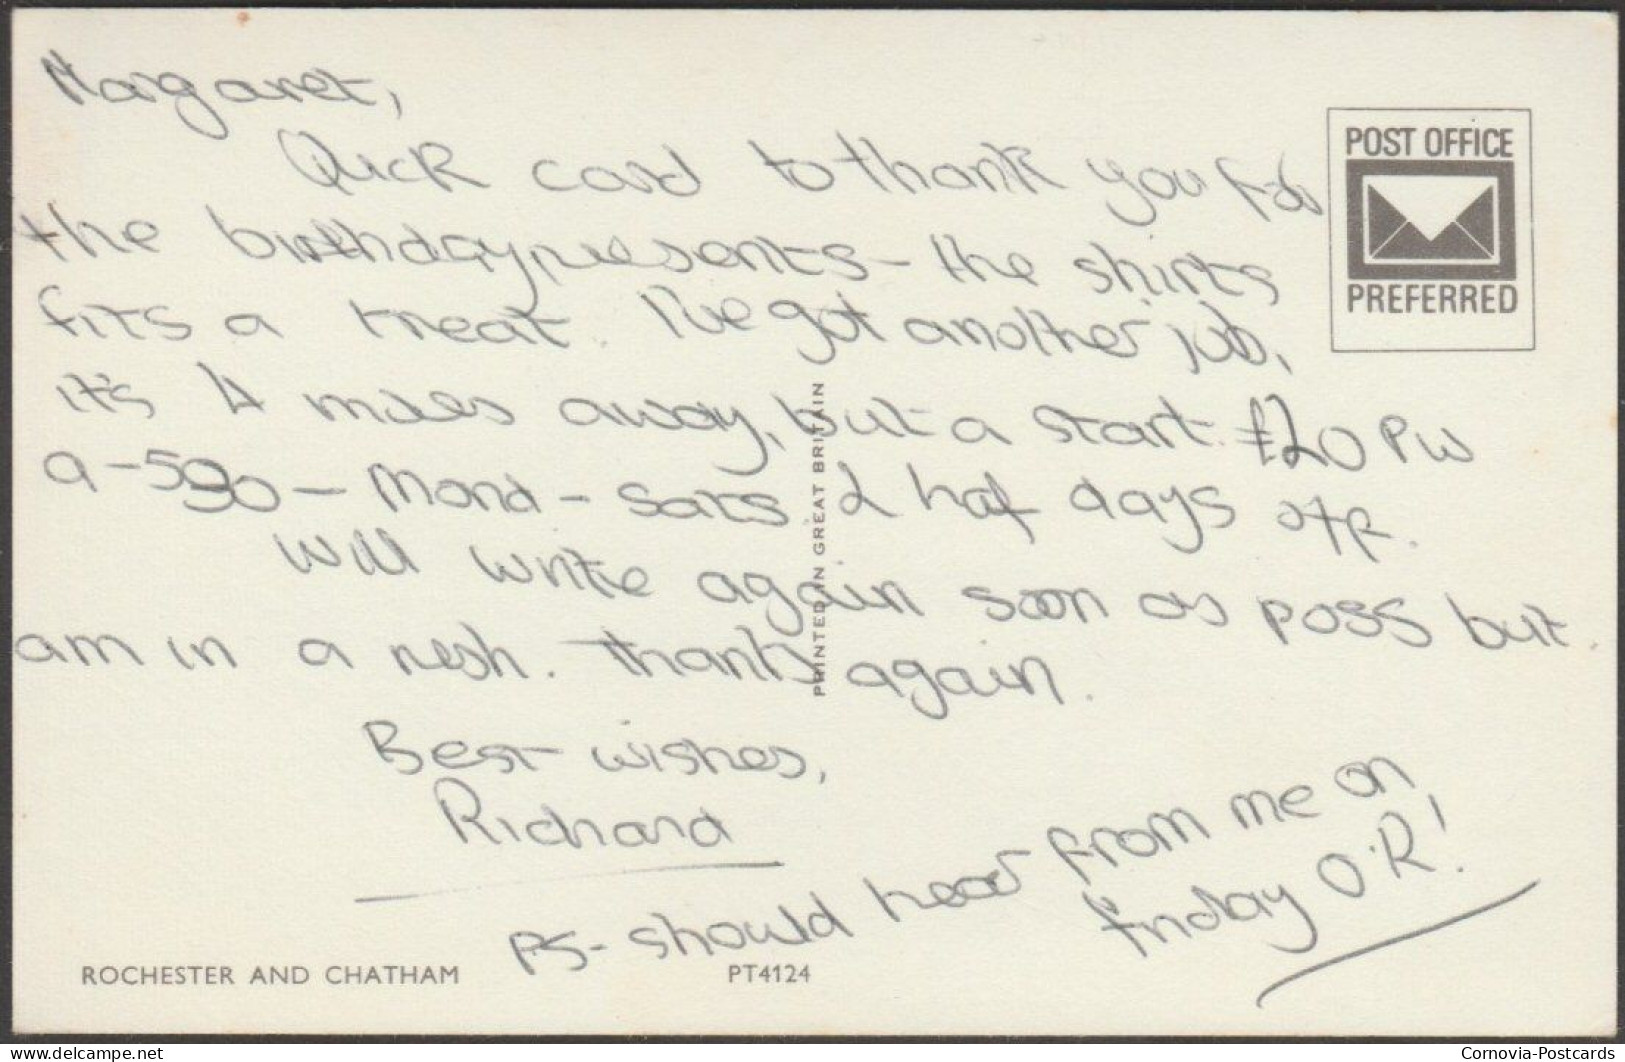 Margaret,
Quick card to thank you for
the birthday presents - the shirts
fits a treat. I've got another job,
it's 4 miles away, but a start. £20 PW
9-530 - Mond - Sats. 2 half days off.
Will write again soon as poss but
am in a rush. Thanks again.
Best wishes,
Richard
PS - should hear from me on
friday O.R!
POST OFFICE
PREFERRED
PRINTED IN GREAT BRITAIN
ROCHESTER AND CHATHAM
PT4124
https://www.delcampe.net
Cornovia-Postcards